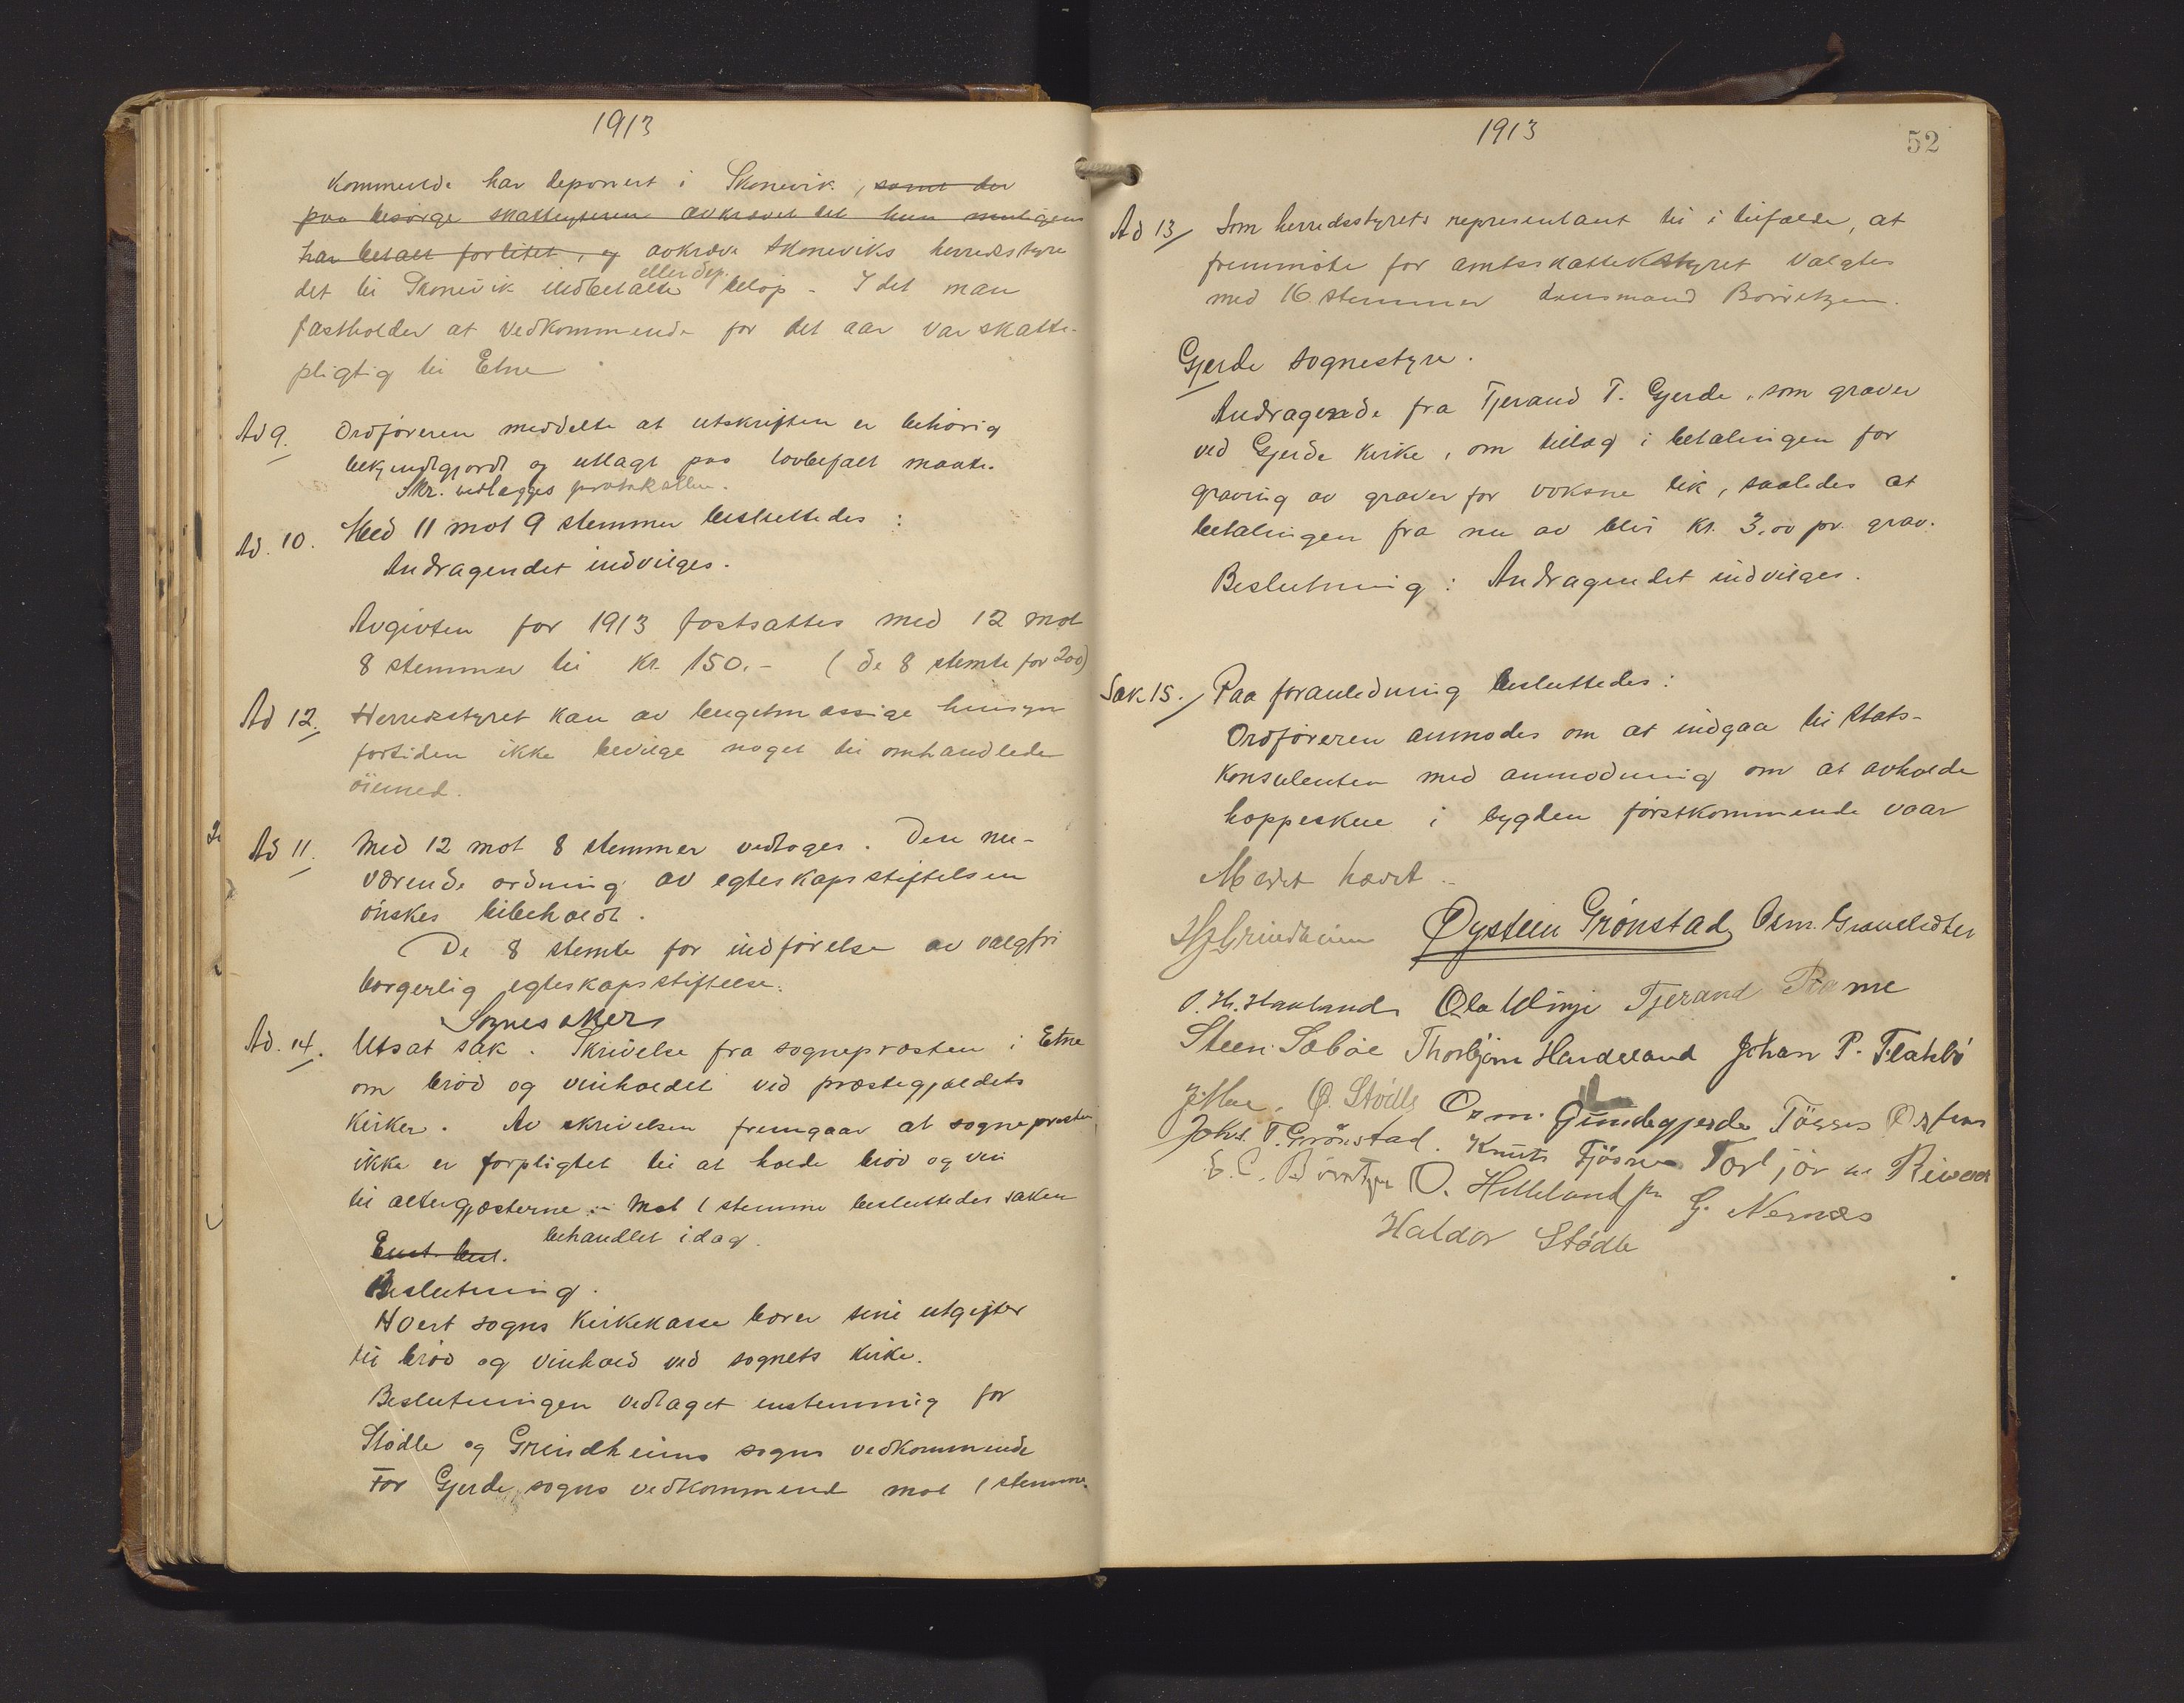 1913
Kommende har deponert i Skonevik, samt der
paa besörge skatteyteren avkrævet det hun muligens
har betalt forlitet, og avkræve Skoneviks herredsstyre
eller dep.
det til Skonevik indbetalte belöp - I det man
fastholder at vedkommende for det aar var skatte-
pligtig til Etne
Ad 9. Ordföreren meddelte at utskriften er behörig
bekjendtgjordt og utlagt paa lovbefalt maate.
Skr. vedlægges protokollen.
Ad. 10. Med 11 mot 9 stemmer besluttedes:
Andragendet indvilges.
Avgivten for 1913 fastsattes med 12 mot
8 stemmer til Kr. 150.- (de 8 stemte for 200)
Ad 12. Herredsstyret kan av budgetmæssige hensyn
fortiden ikke bevilge noget til omhandlede
öiemed.
Ad 11. Med 12 mot 8 stemmer vedtoges. Den nu-
værende ordning av egteskapsstiftelsen
önskes bibeholdt.
De 8 stemte for indförelse av valgfri
borgerlig egteskapsstiftelse.
Sognesaker
Ad. 14. Utsat sak. Skrivelse fra sogneprosten i Etne
om bröd og vinholdet ved præstegjældets
Kirker. Av skrivelsen fremgaar at sogneprosten
ikke er forpligtet til at holde bröd og vin
til altergjæsterne. Mot 1 stemme besluttedes saken
behandlet idag.
Enst. besl.
Beslutning.
Hvert sogns Kirkekasse bærer sine utgifter
til bröd og vinhold ved sognets kirke.
Beslutningen vedtaget enstemmig for
Stödle og Grindheims sogns vedkommende
For Gjerde sogns vedkommende mot 1 stemme.
1913
52
Ad 13/ Som herredsstyrets representant til i tilfælde, at
fremmöte for amtsskattestyret valgtes
med 16 stemmer lensmand Börretzen.
Gjerde sognestyre.
Andragende fra Tjerand T. Gjerde, som graver
ved Gjerde kirke, om tillæg i betalingen for
graving av graver for voksne lik, saaledes at
betalingen fra nu av blir Kr. 3,00 pr. grav.
Beslutning: Andragendet indvilges.
Sak 15./ Paa foranledning besluttedes:
Ordföreren anmodes om at indgaa til Stats-
Konsulenten med anmodning om at avholde
hoppeskue i bygden förstkommende vaar
Mötet hævet.
Grindheim Øystein Grönstad Osm. Grauelidter
O. H. Haaland Ola Vinje Tjerand Rame
Steen Sæböe Thorbjörn Handeland Johan P. Flatebö
J. Moe. Ø. Stödle Osm. Grindegjerde Tösses Østhus
Johs. T. Grönstad. Knut Fjösne Torbjörn Rivar
E. C. Börretzen O. Helleland jr. G. Nernæs
Haldor Stödle